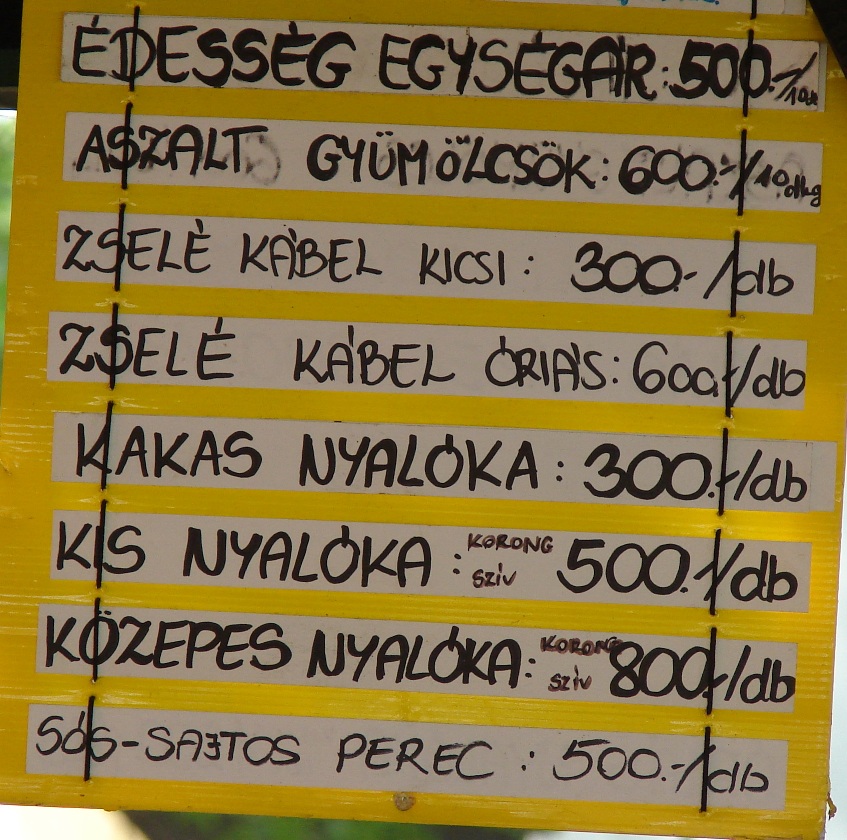 ÉDESSÉG EGYSÉGÁR: 500.-/10dk
ASZALT GYÜMÖLCSÖK: 600.-/10dkg
ZSELÉ KÁBEL KICSI: 300.-/db
ZSELÉ KÁBEL ÓRIÁS: 600.-/db
KAKAS NYALÓKA: 300.-/db
KIS NYALÓKA: KORONG SZIV 500.-/db
KÖZEPES NYALÓKA: KORONG SZIV 800.-/db
SÓS-SAJTOS PEREC: 500.-/db